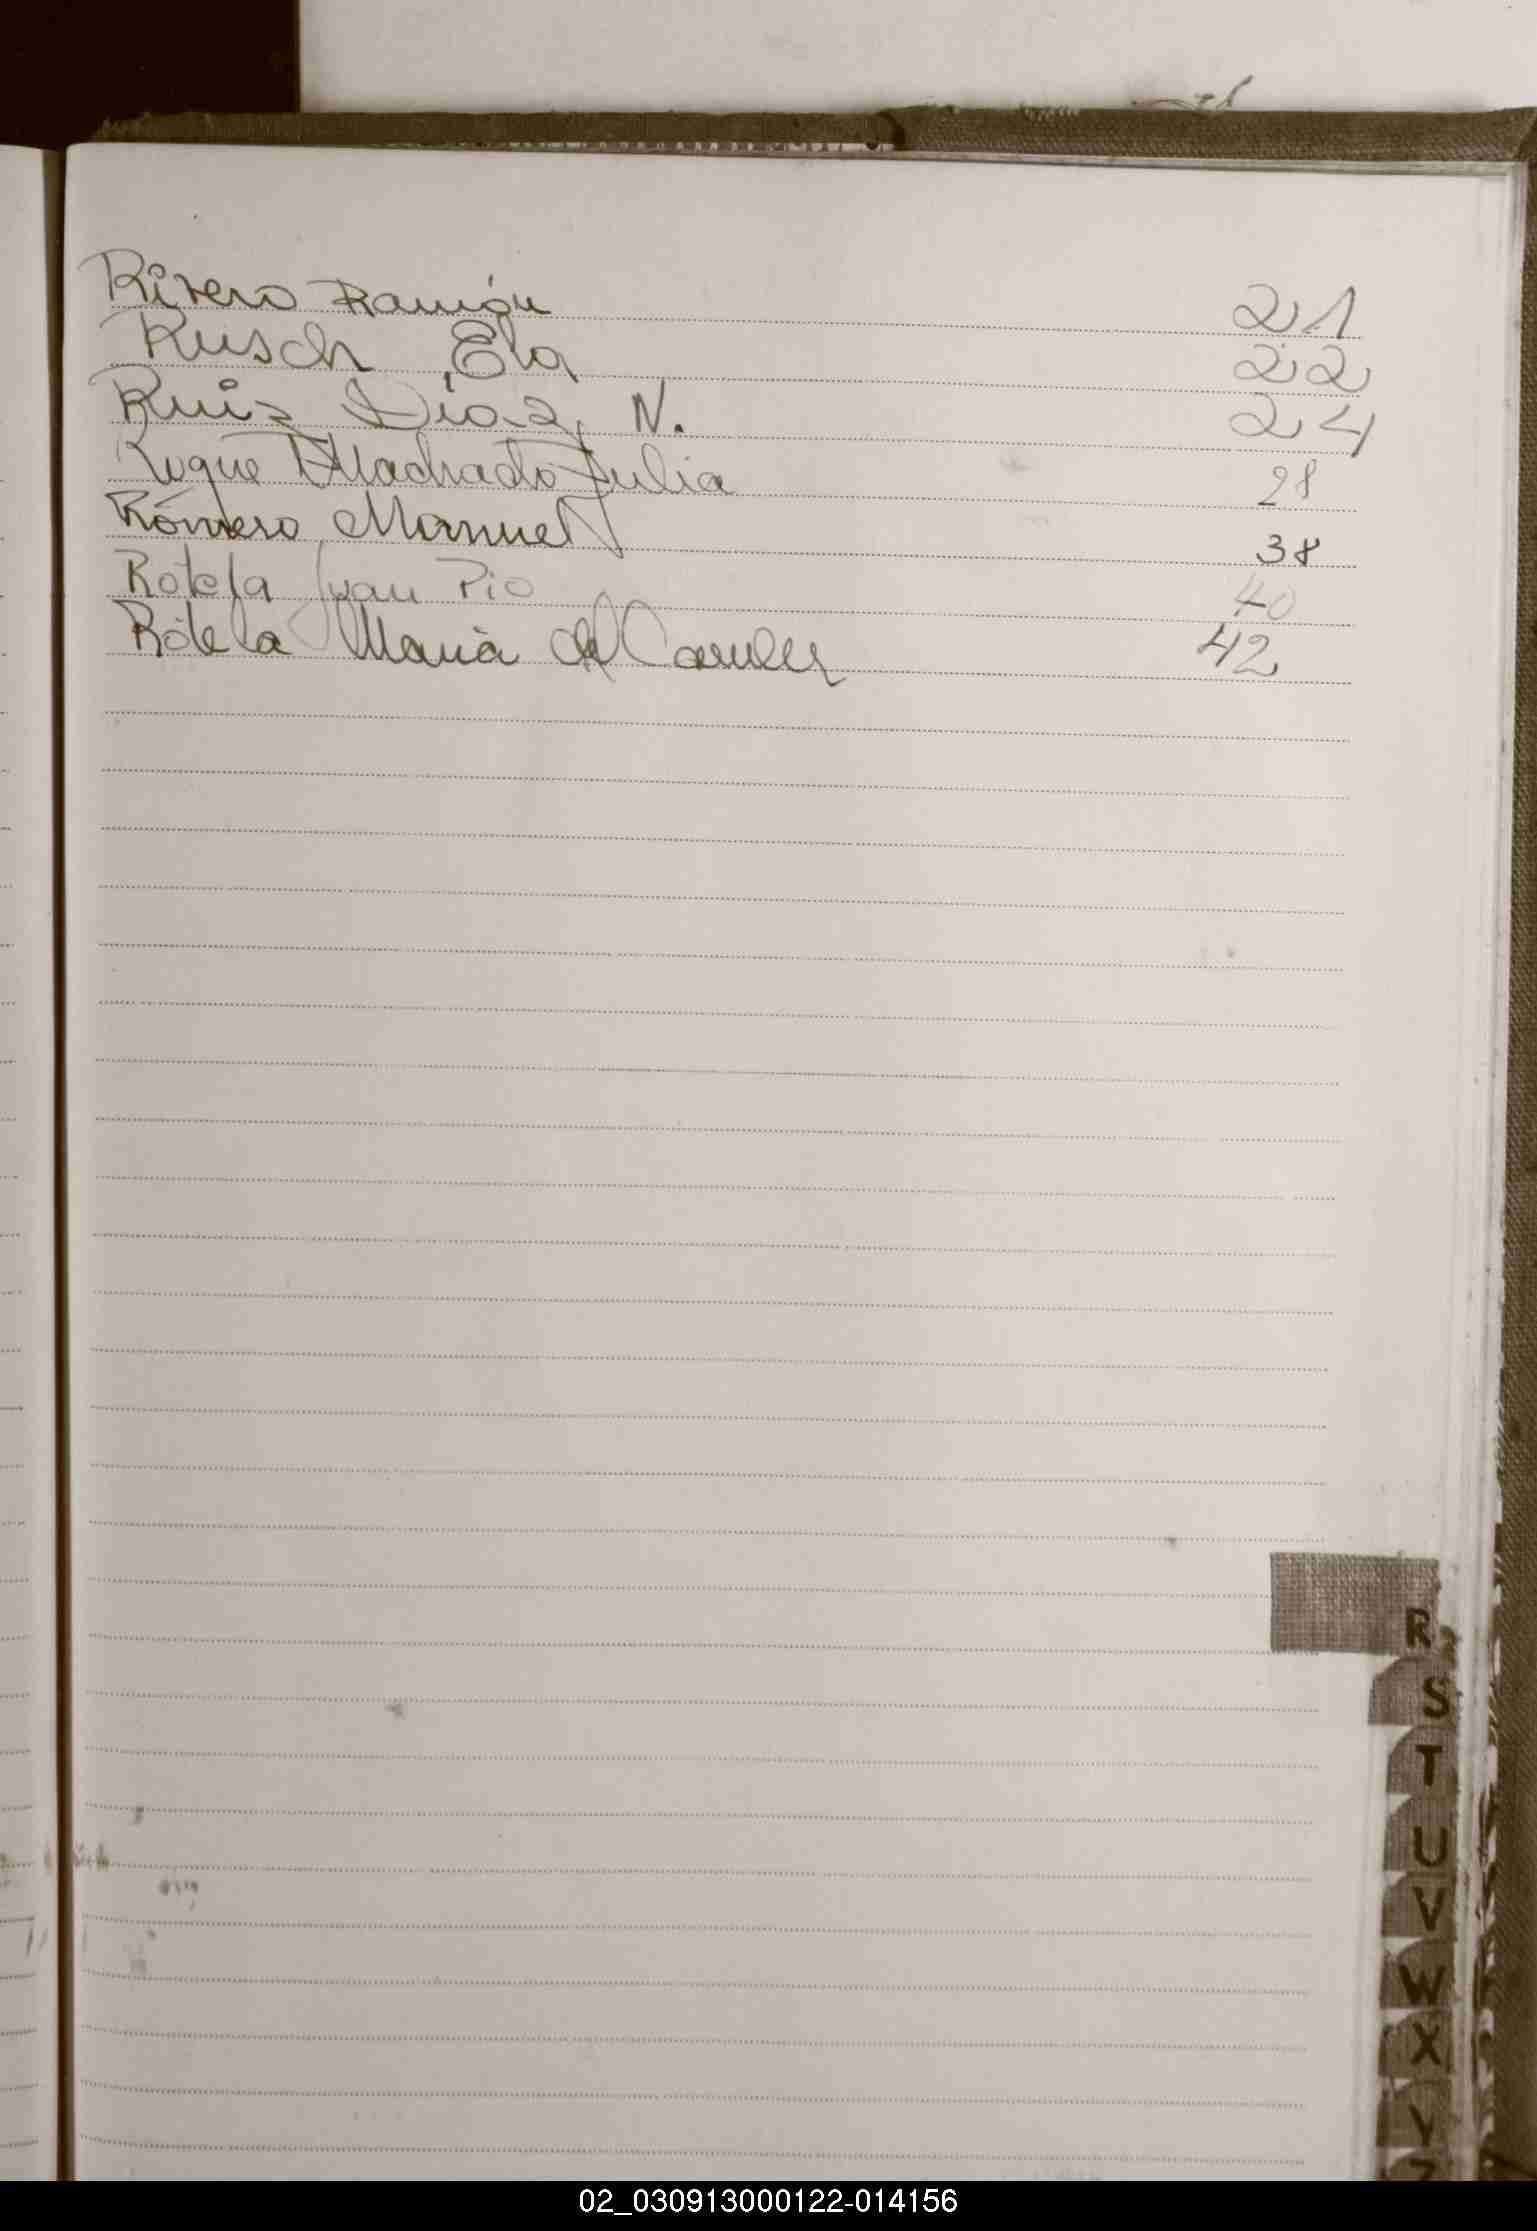 Rivero Ramón 21
Rusch Ela 22
Ruiz Diaz, N. 24
Roque Machado Julia 28
Romero Manuel 38
Rotela Juan Pio 40
Rotela Maria del Carmen 42
R
S
T
U
V
W
X
Y
Z
02_030913000122-014156